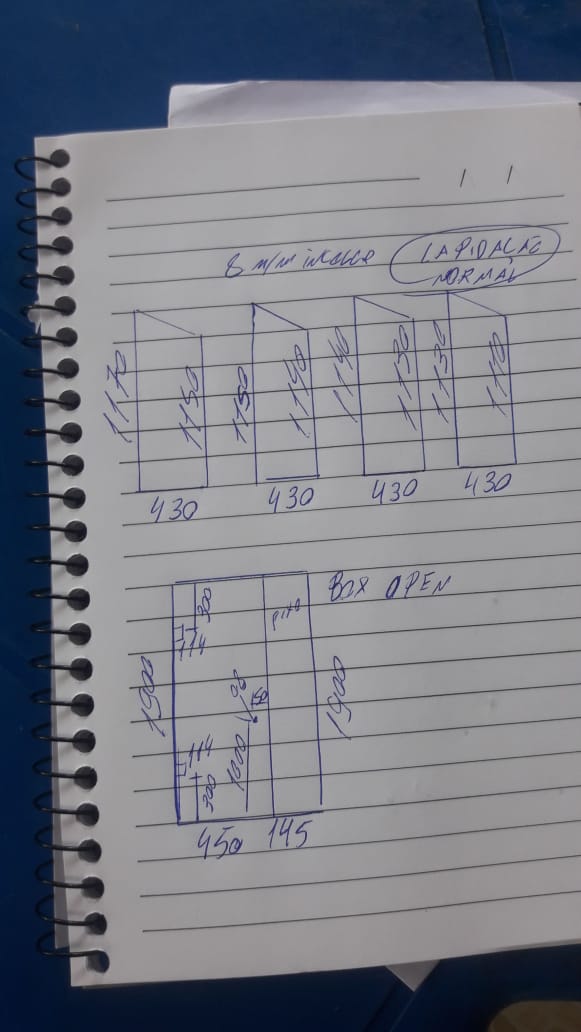 8 m/m incolor LAPIDAÇÃO
NORMAL
1170 1150 1150 1140 1140 1130 1130 1110
430 430 430 430
BOX OPEN
300
114
1900
1900
1000
114
300
450 145